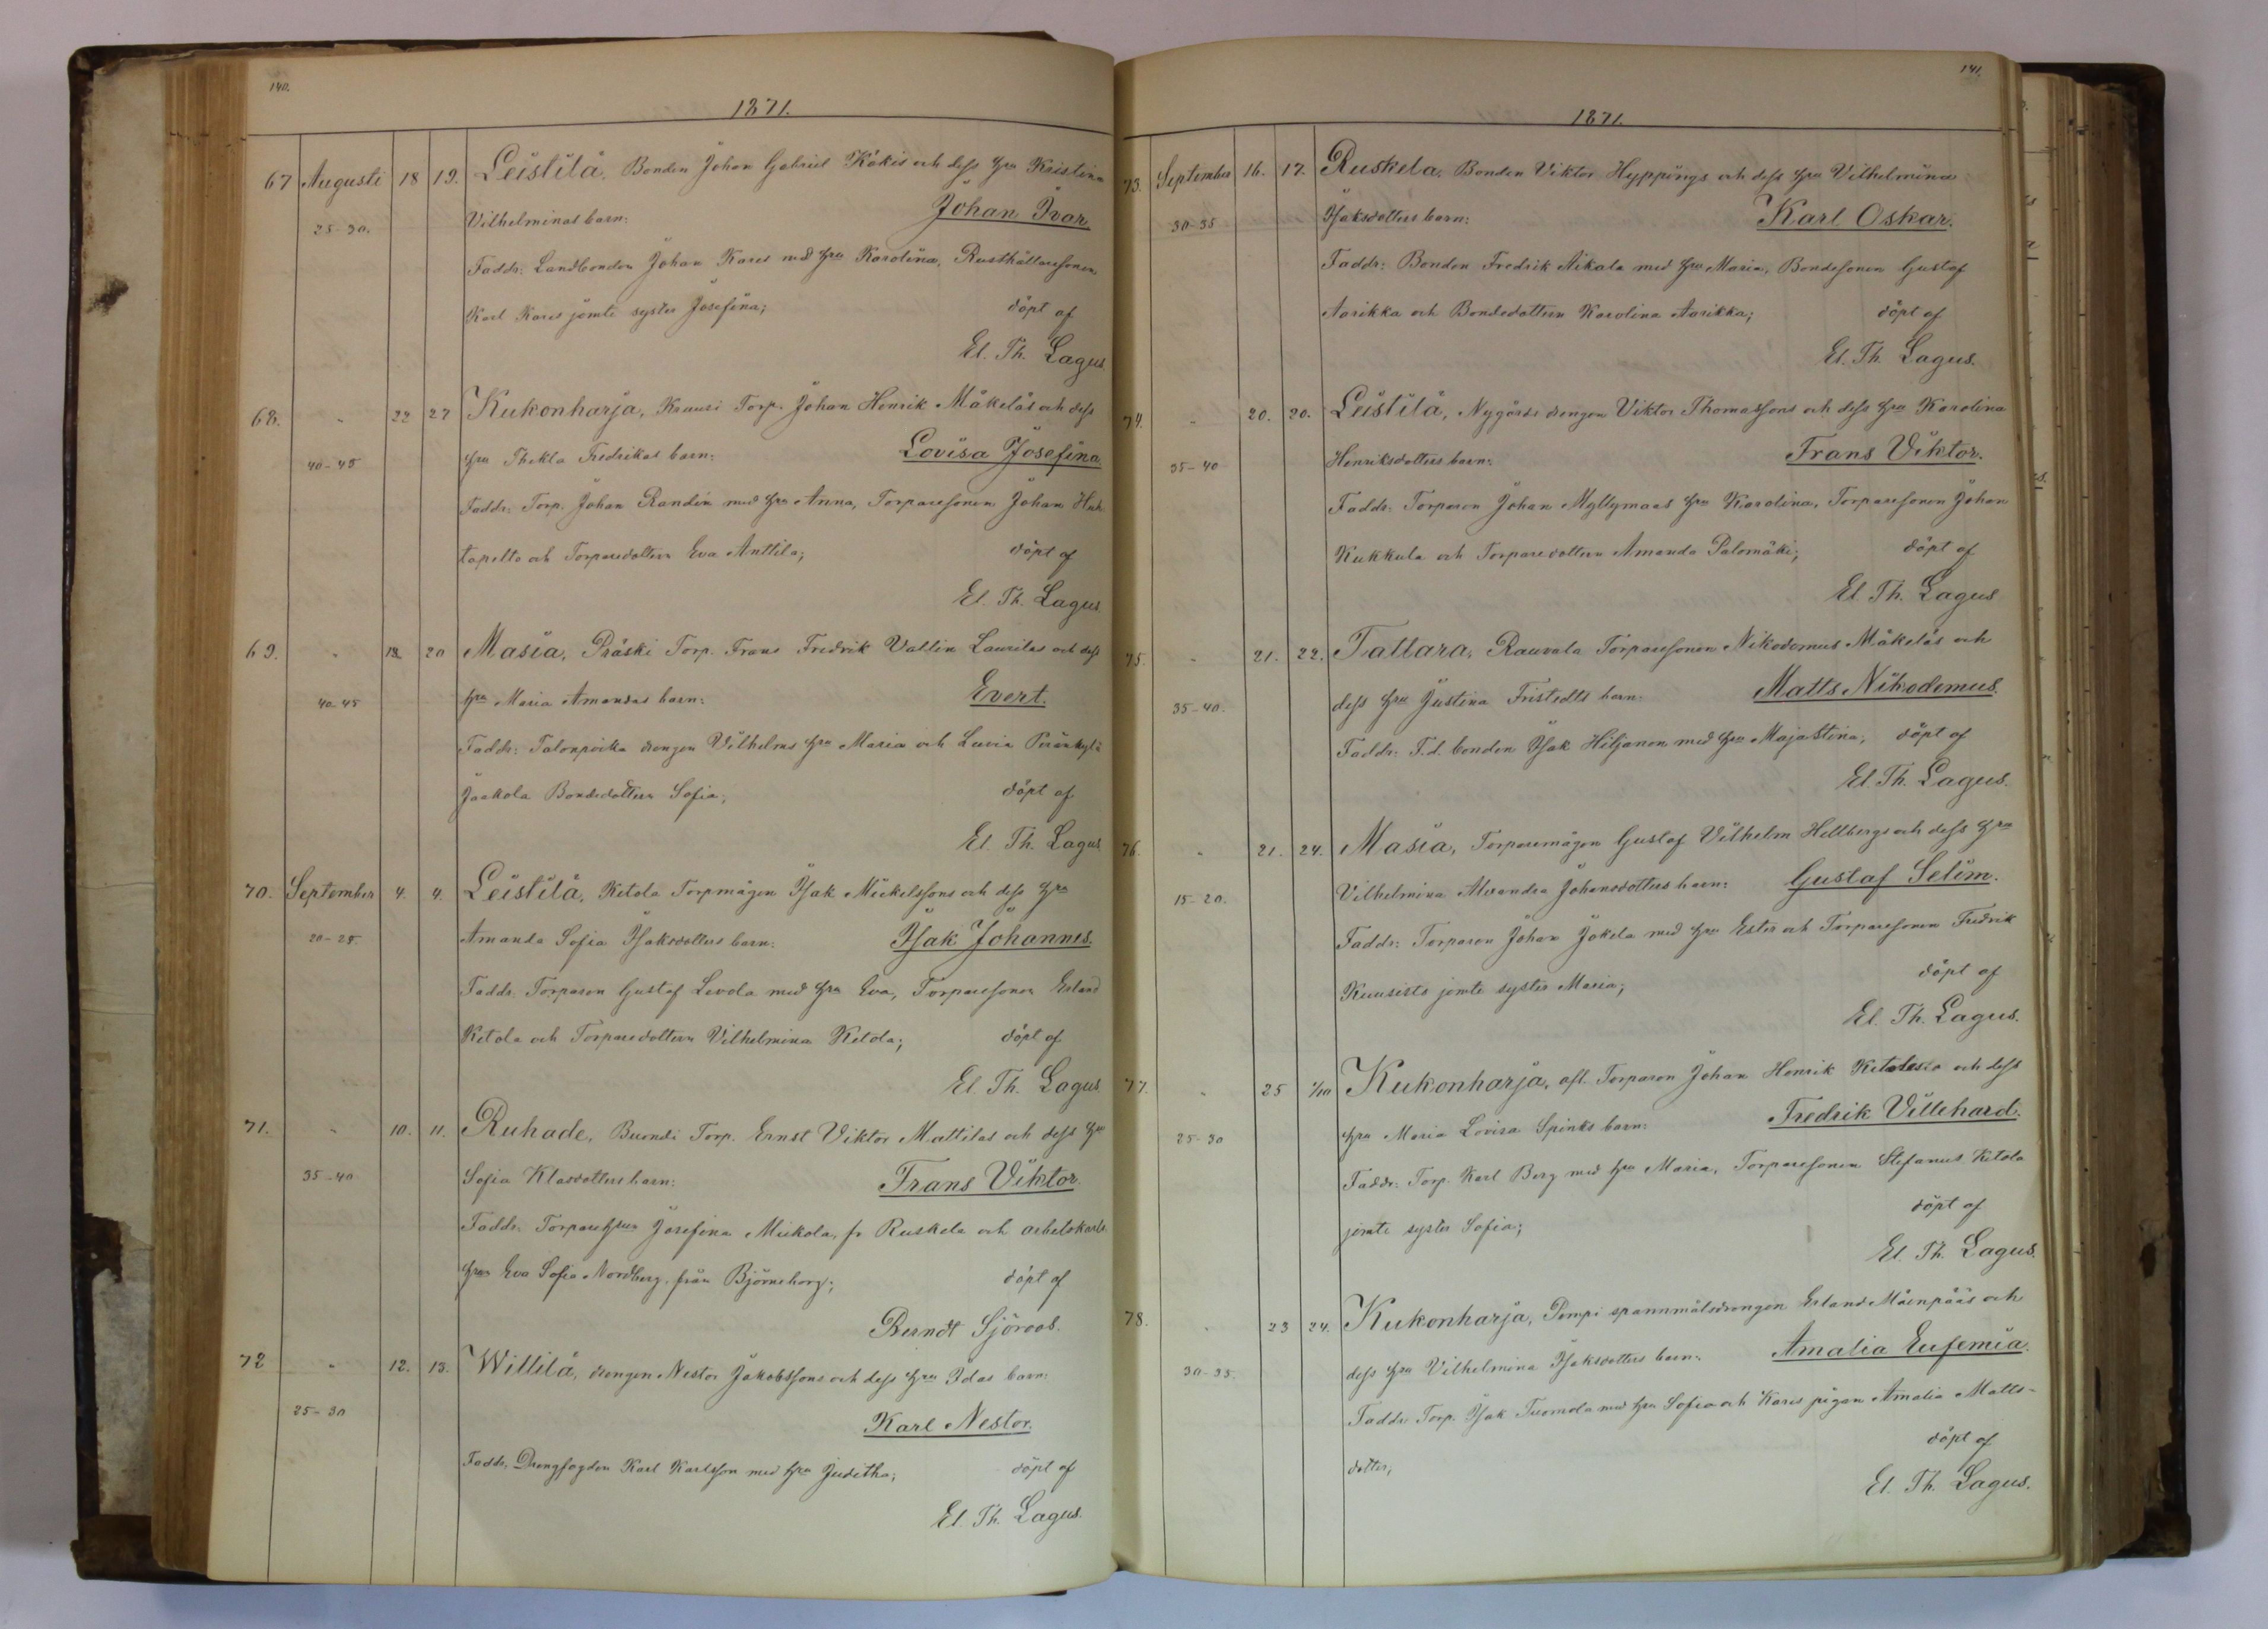 140.
1871.
67 Augusti 18 19. Leistilä, Bonden Johan Gabriel Kökis och dess hru Kristina
25-30. Vilhelminas barn: Johan Ivar.
Faddr: Landbonden Johan Kares med hru Karolina, Rusthållaresonen
Karl Kares jemte syster Josefina; döpt af
El. Th. Lagus
68. " 22 27 Kukonharja, Krausi Torp. Johan Henrik Mäkeläs och dess
40-45 hru Thekla Fredrikas barn: Lovisa Josefina
Faddr: Torp. Johan Randin med hru Anna, Torparesonen Johan Huh-
tapelto och Torparedottern Eva Anttila; döpt af
El. Th. Lagus.
69. " 20 Masia, Präski Torp. Frans Fredrik Vallin Laurilas och dess
40-45 hru Maria Amandas barn: Evert.
Faddr: Talonpoika drengen Vilhelms hru Maria och Lavia
Jaakola Bondedottern Sofia; döpt af
El. Th. Lagus
70. September 4. 4. Leistilä, Ketola Torpmågen Isak Mickelssons och dess hru
20-25. Amanda Sofia Isaksdotters barn: Isak Johannes.
Faddr. Torparen Gustaf Levola med hru Eva, Torparesonen Erland
Ketola och Torparedottern Vilhelmina Ketola; döpt af
El. Th. Lagus
71. " 10. 11. Ruhade, Buondi Torp. Ernst Viktor Mattilas och dess hru
35-40 Sofia Klasdotters barn: Frans Viktor.
Faddr: Torparehrun Josefina Mickola, fr Ruskela och arbetskarls
hrun Eva Sofia Nordberg, från Björneborg; döpt af
Berndt Sjöroos.
72 " 12. 13. Willilä, drengen Nestor Jakobssons och dess hru Idas barn:
25-30 Karl Nestor.
Faddr, Drengfogden Karl Karlsson med hru Juditha; döpt af
El. Th. Lagus.
141.
1871.
73. September 16. 17. Ruskela, Bonden Viktor Hyppings och dess hru Vilhelmina
30-35 Isaksdotters barn: Karl Oskar.
Faddr: Bonden Fredrik Nikala med hru Maria, Bondesonen Gustaf
Aarikka och Bondedottern Karolina Aarikka; döpt af
El. Th. Lagus.
74. " 20. 20. Leistilä, Nygårds drengen Viktor Thomassons och dess hru Karolina
35-40 Henriksdotters barn: Frans Viktor.
Faddr: Torparen Johan Myllymaas hru Karolina, Torparesonen Johan
Kukkula och Torparedottern Amanda Palomäki; döpt af
El. Th. Lagus
75. " 21. 22. Tattara, Rauvala Torparesonen Nikodemus Mäkeläs och
35-40. dess hru Justina Fristedts barn: Matts Nikodemus.
Faddr: F.d. bonden Isak Hiljanen med hru Maja Stina; döpt af
El. Th. Lagus.
76. " 21. 24. Masia, Torparemågen Gustaf Vilhelm Hellbergs och dess hru
15-20. Vilhelmina Alexandra Johansdotters barn: Gustaf Selim.
Faddr: Torparen Johan Jokela med hru Ester och Torparesonen Fredrik
Kuusisto jemte syster Maria; döpt af
El. Th. Lagus.
77. " 25 1/10 Kukonharja, afl. Torparen Johan Henrik och dess
25-30 hru Maria Lovisa Spinks barn: Fredrik Villehard.
Faddr: Torp. Karl Berg med hru Maria, Torparesonen Stefanus Ketola
jemte syster Sofia; döpt af
El. Th. Lagus.
78. " 23 24. Kukonharja, Pompi spannmålsdrengen Erland Mäenpääs och
30-35. dess hru Vilhelmina Isaksdotters barn: Amalia Eufemia.
Faddr. Torp. Isak Tuomola med hru Sofia och Kares pigan Amalia Matts-
dotter; döpt af
El. Th. Lagus.